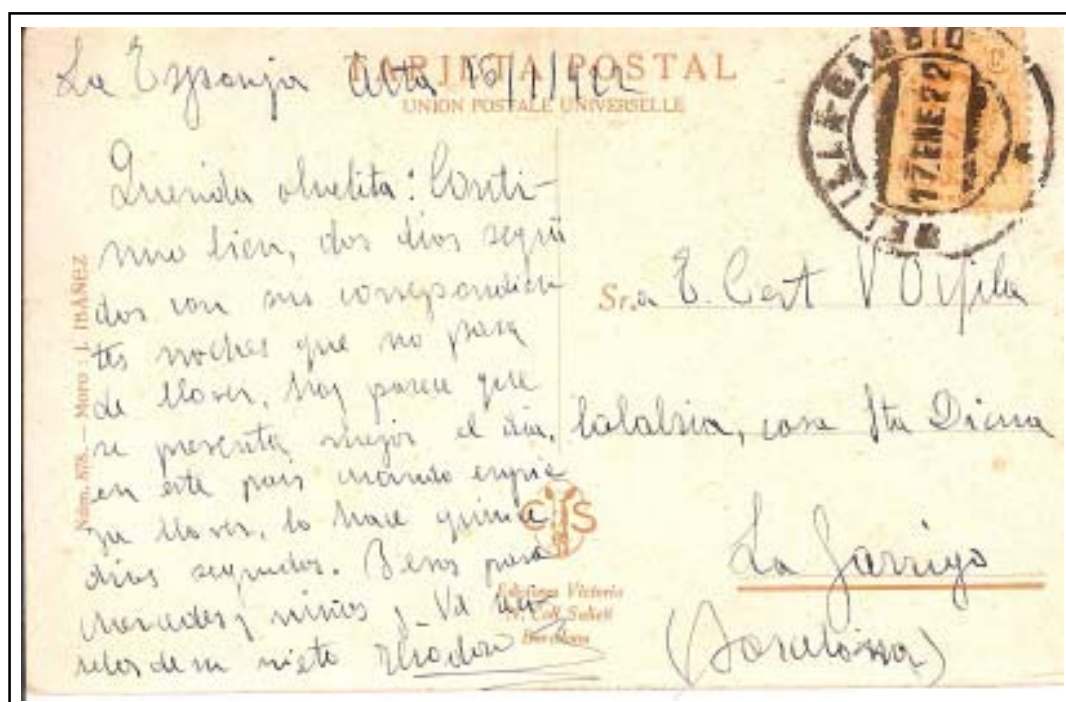 TARJETA POSTAL
UNION POSTALE UNIVERSELLE
La Esponja 16/1/922
Querida abuelita: Conti-
nuo bien, dos dias segui
dos con sus correspondien
tes noches que no para
de llover, hoy parece que
se presenta mejor el dia,
en este pais cuando empie
za llover, lo hace quince
dias seguidos. Besos para
Mercedes y niños y Vd
de su nieto
Núm. 878. — Moro : J. IBAÑEZ
C S
Ediciones Victoria
N. Coll Salieti
Barcelona
MELILLA
17 ENE 22
Sr.a E. Cert V
casa Sta
La Garriga
(Barcelona)